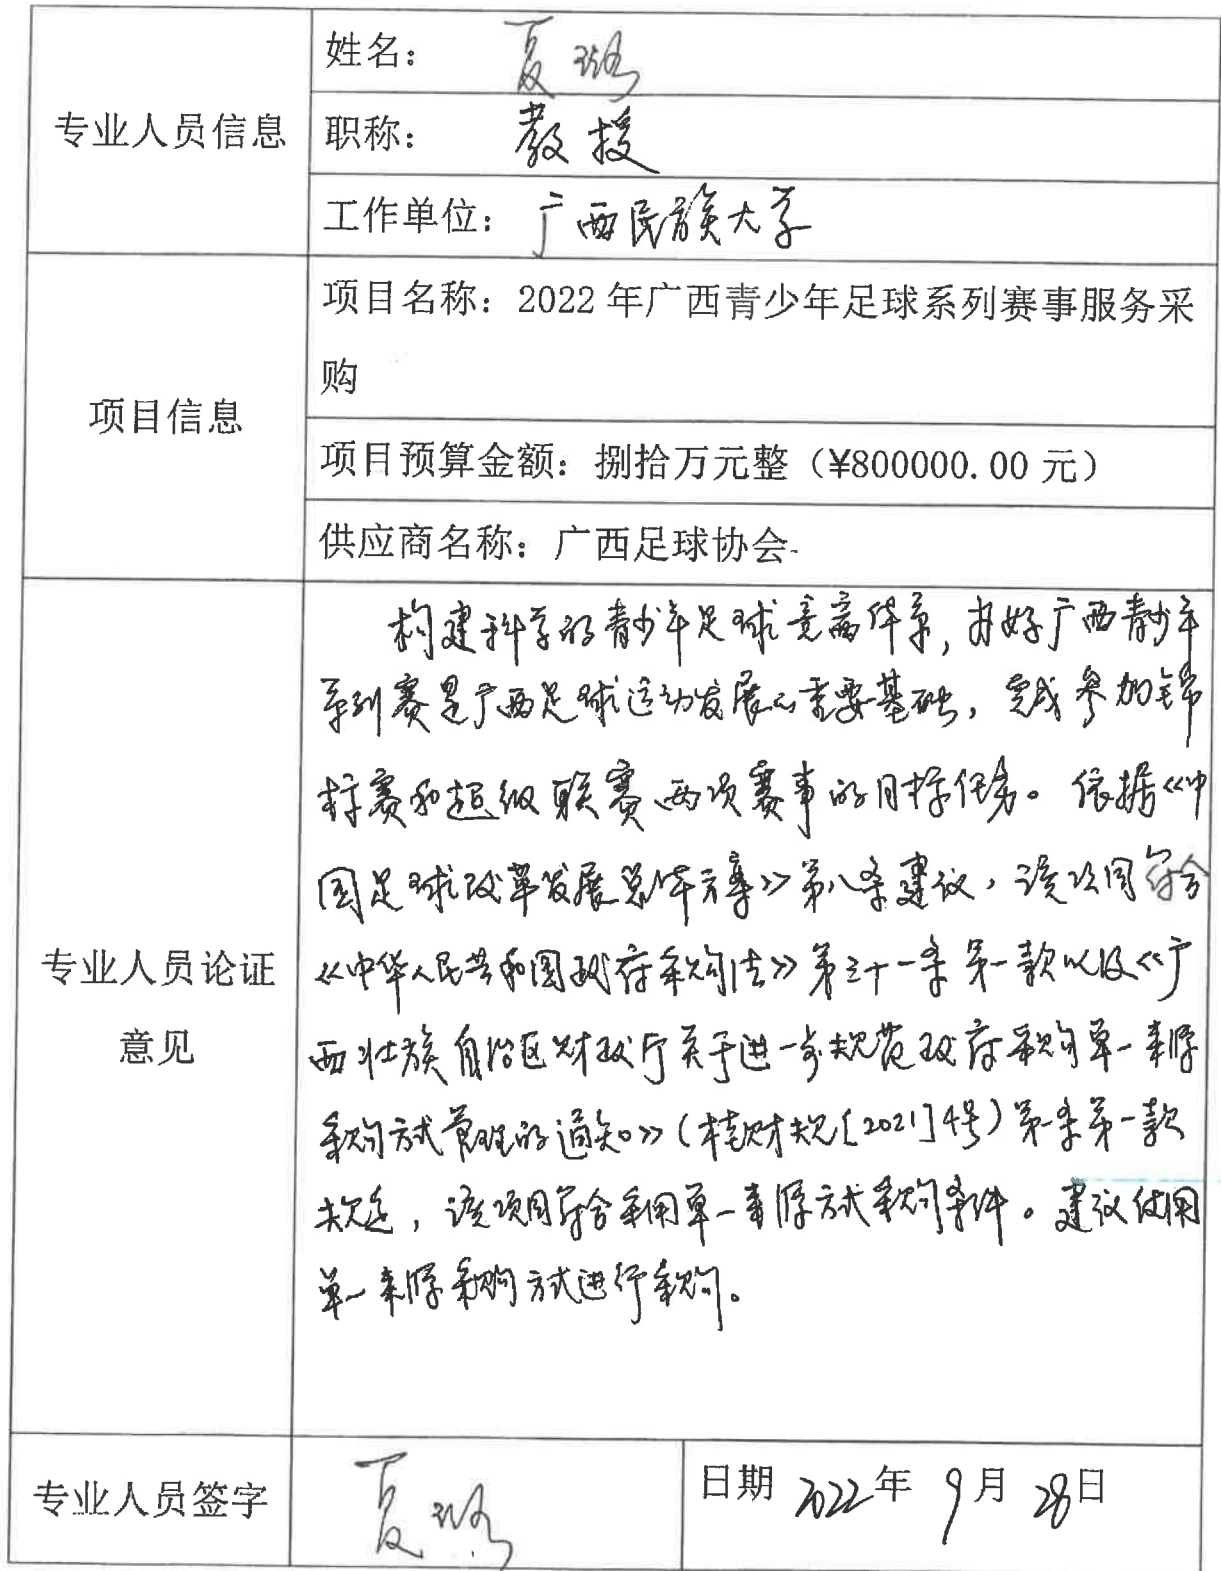 专业人员信息
姓名：夏璐
职称：教授
工作单位：广西民族大学
项目信息
项目名称：2022年广西青少年足球系列赛事服务采
购
项目预算金额：捌拾万元整（¥800000.00 元）
供应商名称：广西足球协会
专业人员论证
意见
构建科学的青少年足球竞赛体系，办好广西青少年
系列赛是广西足球运动发展的重要基础，完成参加锦
标赛和超级联赛两项赛事的目标任务。依据《中
国足球改革发展总体方案》第八条建议，该项目符合
《中华人民共和国政府采购法》第三十一条第一款以及《广
西壮族自治区财政厅关于进一步规范政府采购单一来源
采购方式管理的通知》（桂财规［2021］4号）第一条第一款
规定，该项目符合采用单一来源方式采购条件。建议使用
单一来源采购方式进行采购。
专业人员签字
夏璐
日期 2022年 9月 28日